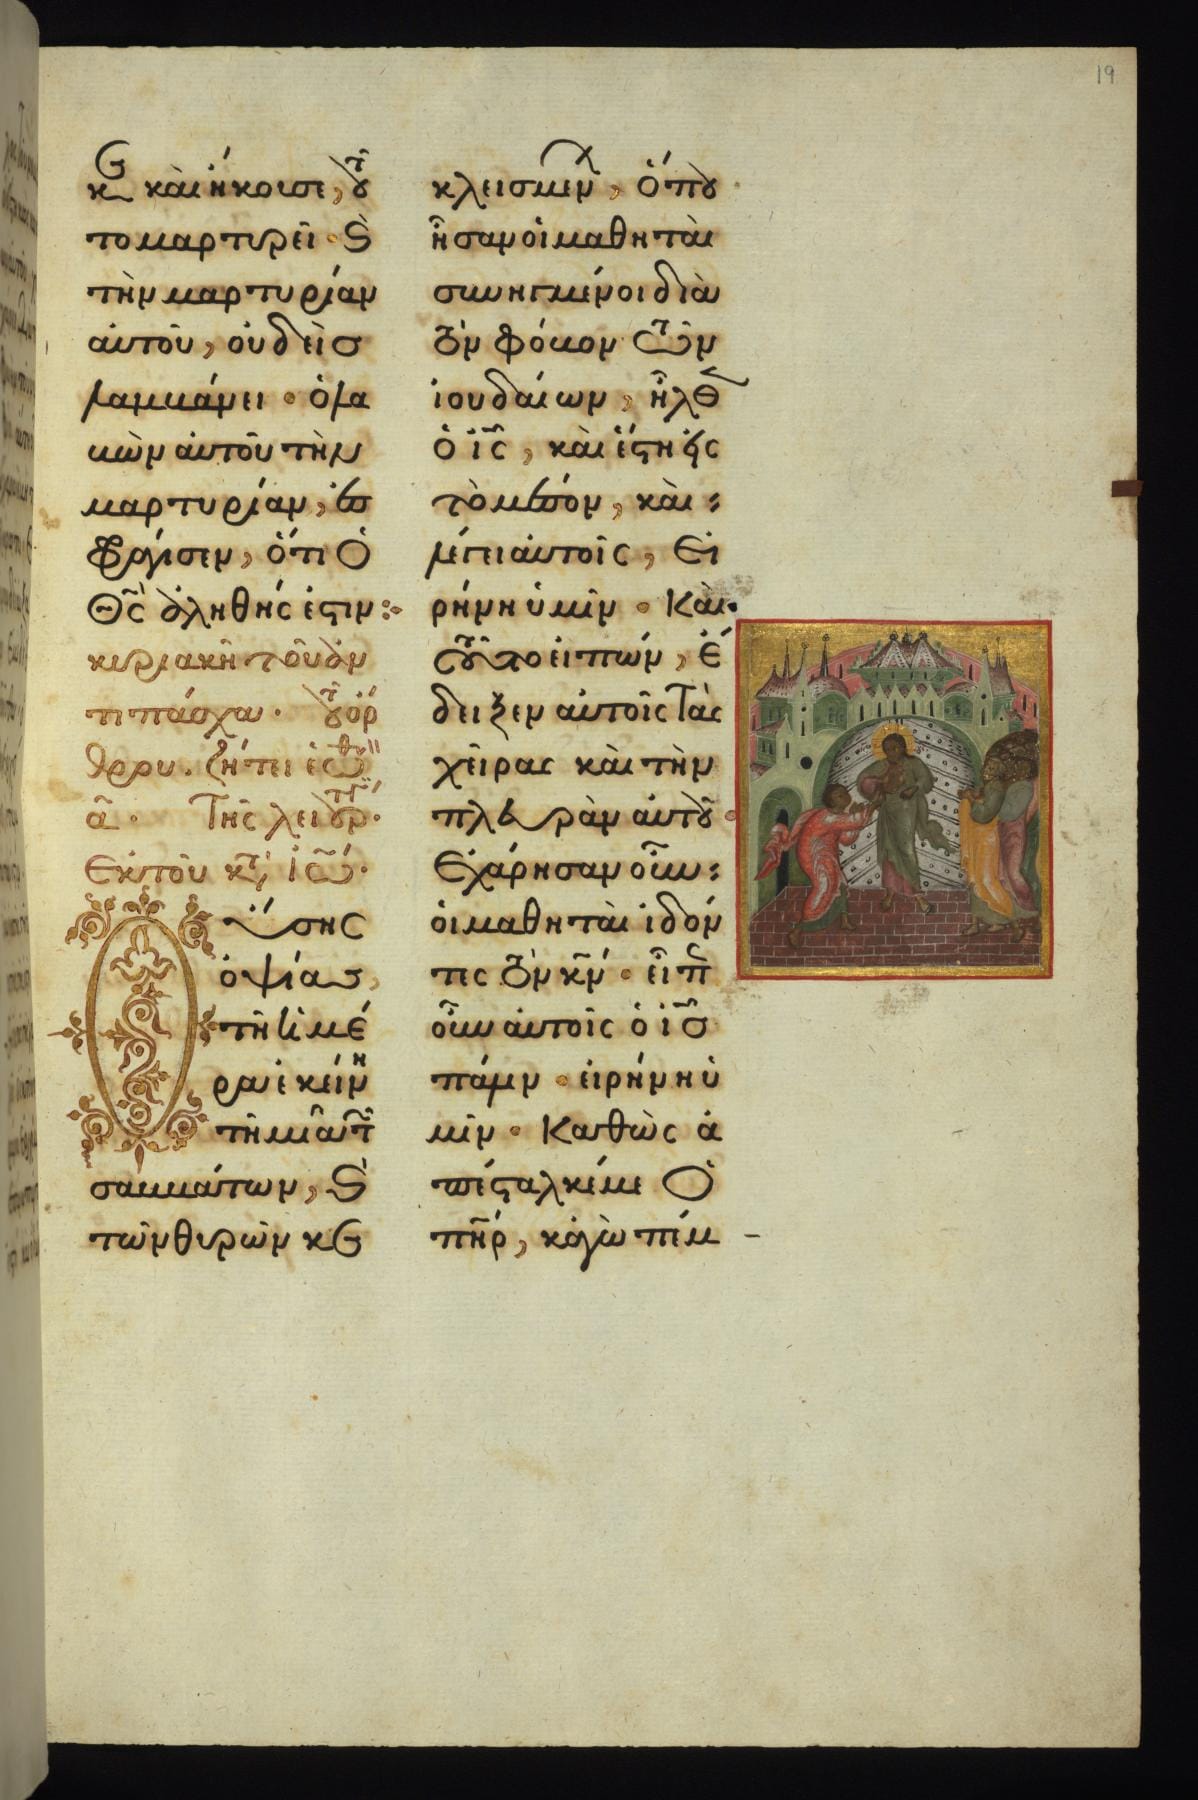 19
κε καὶ ἤκουσε, τοῦ
το μαρτυρεῖ · καὶ
τὴν μαρτυρίαν
αὐτοῦ, οὐδεὶσ
λαμβάνει · ὁ λα
βὼν αὐτοῦ τὴν
μαρτυρίαν, ἐσ
φράγισεν, ὅτι ὁ
θς ἀληθής ἐστιν :·
κυριακῆ τοῦ ἀν
τιπάσχα · τοῦ ὄρ
θρου . ζήτει ἑωθ
α · Τῆς λειτουρ ·
Εκ τοῦ κτ ἰω ·
Οὔσης
ὀψίας,
τῆ ἡμέ
ρα ἐκείνη
τῆ μιᾶ τῶν
σαββάτων, καὶ
τῶν θυρῶν κε
κλεισμένων, ὅπου
ἦσαν οἱ μαθηταὶ
συνηγμένοι διὰ
τὸν φόβον τῶν
ἰουδαίων, ἦλθεν
ὁ ις, καὶ ἔστη εἰς
τὸ μέσον, καὶ
λέγει αὐτοῖς, Εἰ
ρήνη ὑμῖν · Καὶ
τοῦτο εἰπών, ἔ
δειξεν αὐτοῖς Τὰς
χεῖρας καὶ τὴν
πλευρὰν αὐτοῦ ·
Εχάρησαν οὖν
οἱ μαθηταὶ ἰδόν
τες τὸν κν · εἶπεν
οὖν αὐτοῖς ὁ ισ
πάλιν · εἰρήνη ὑ
μῖν · Καθὼς ἀ
πέσταλκέ με Ὁ
πηρ, κἀγὼ πέμ